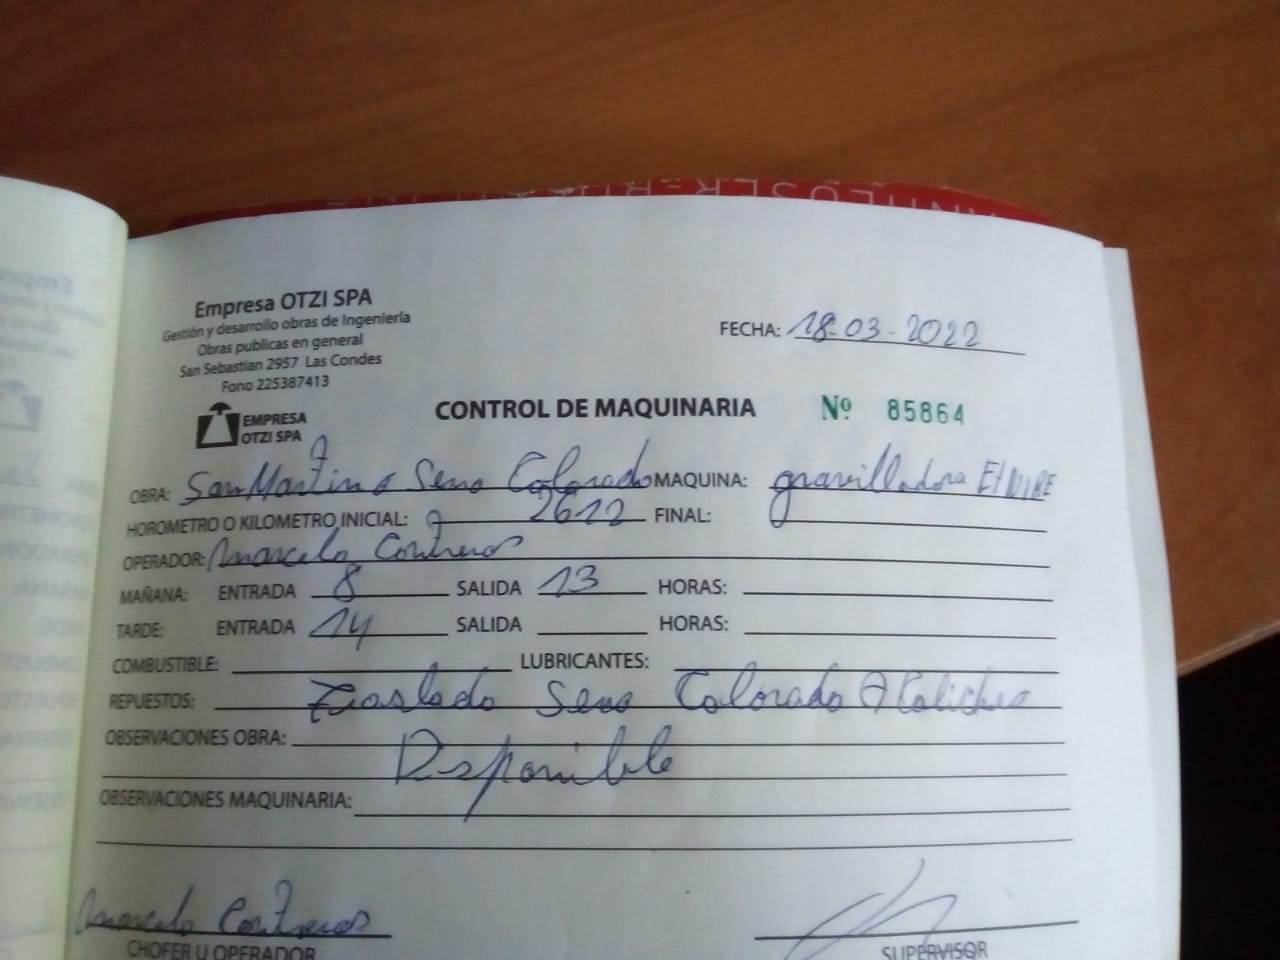 Empresa OTZI SPA
Gestión y desarrollo obras de Ingeniería
Obras publicas en general
San Sebastian 2957 Las Condes
Fono 225387413
FECHA: 18-03-2022
EMPRESA
OTZI SPA
CONTROL DE MAQUINARIA Nº 85864
OBRA: San Martin Seno Colorado MAQUINA: gravilladora
HOROMETRO O KILOMETRO INICIAL: 2612 FINAL:
OPERADOR: Marcelo Contreras
MAÑANA: ENTRADA 8 SALIDA 13 HORAS:
TARDE: ENTRADA 14 SALIDA HORAS:
COMBUSTIBLE: LUBRICANTES:
REPUESTOS: Traslado Seno Colorado A
OBSERVACIONES OBRA:
Disponible
OBSERVACIONES MAQUINARIA:
Marcelo Contreras
CHOFER U OPERADOR SUPERVISOR